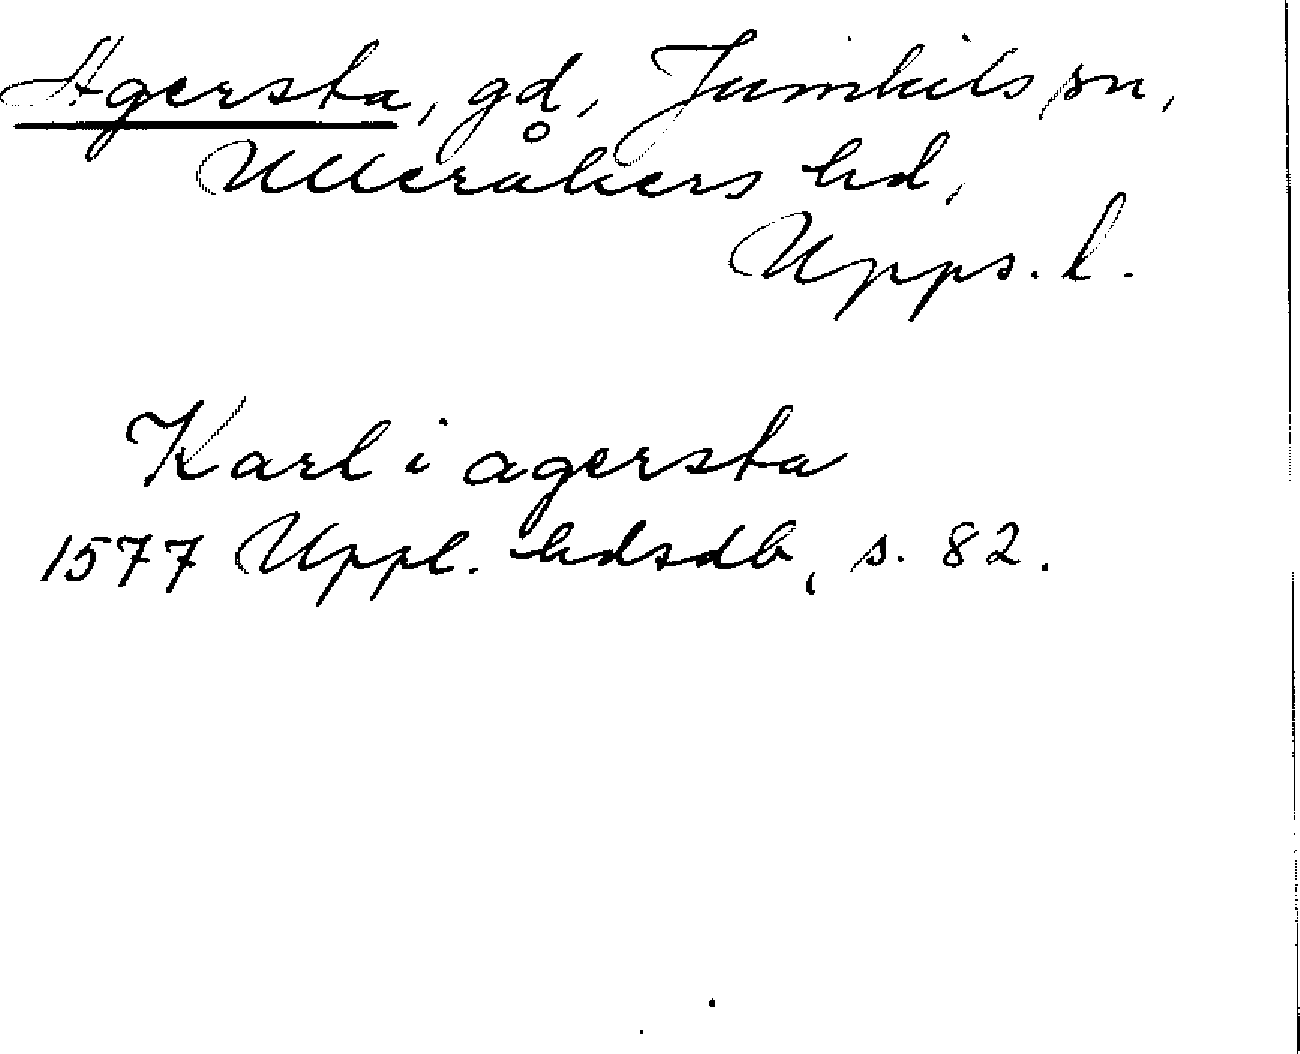 Agersta, gd, Jumkils sn,
Ulleråkers hd,
Upps. l.
Karl i agersta
1577 Uppl. hdsdb, s. 82.